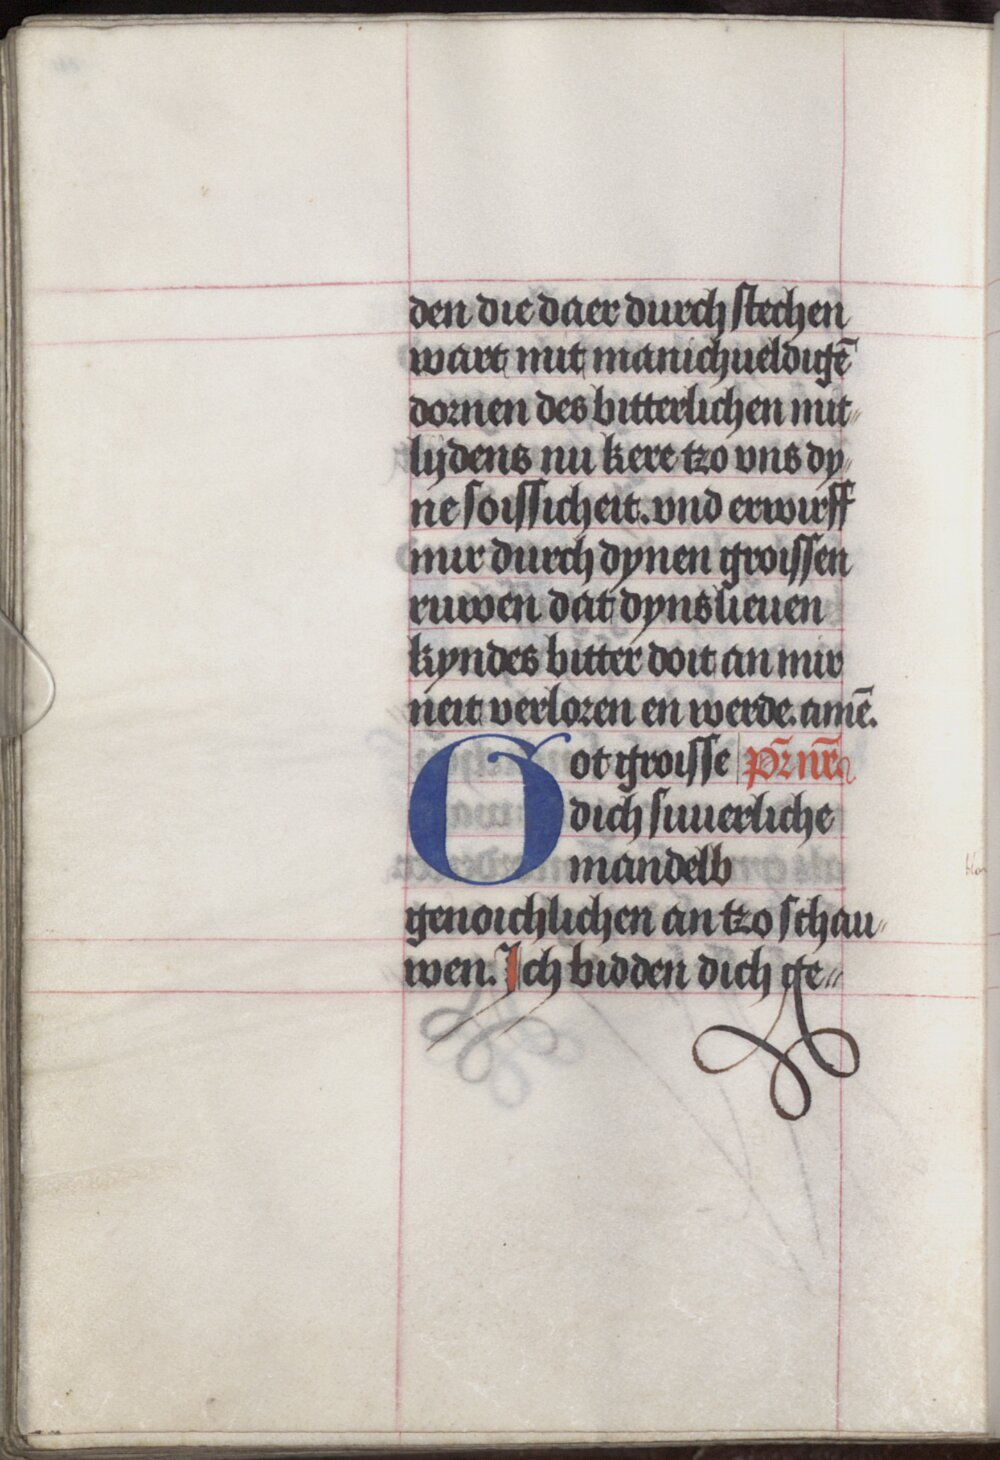 den die daer durch stechen
wart mit manichueldigē
dornen des bitterlichen mit
lijdens nu kere tzo vns dy
ne soissicheit. vnd erwirff
mir durch dynen groissen
ruwen dat dyns lieuen
kyndes bitter doit an mir
neit verloren en werde. amē.
Got groisse pr̄ nr̄
dich suuerliche
mandelb
genoichlichen an tzo schau
wen. Ich bidden dich ge